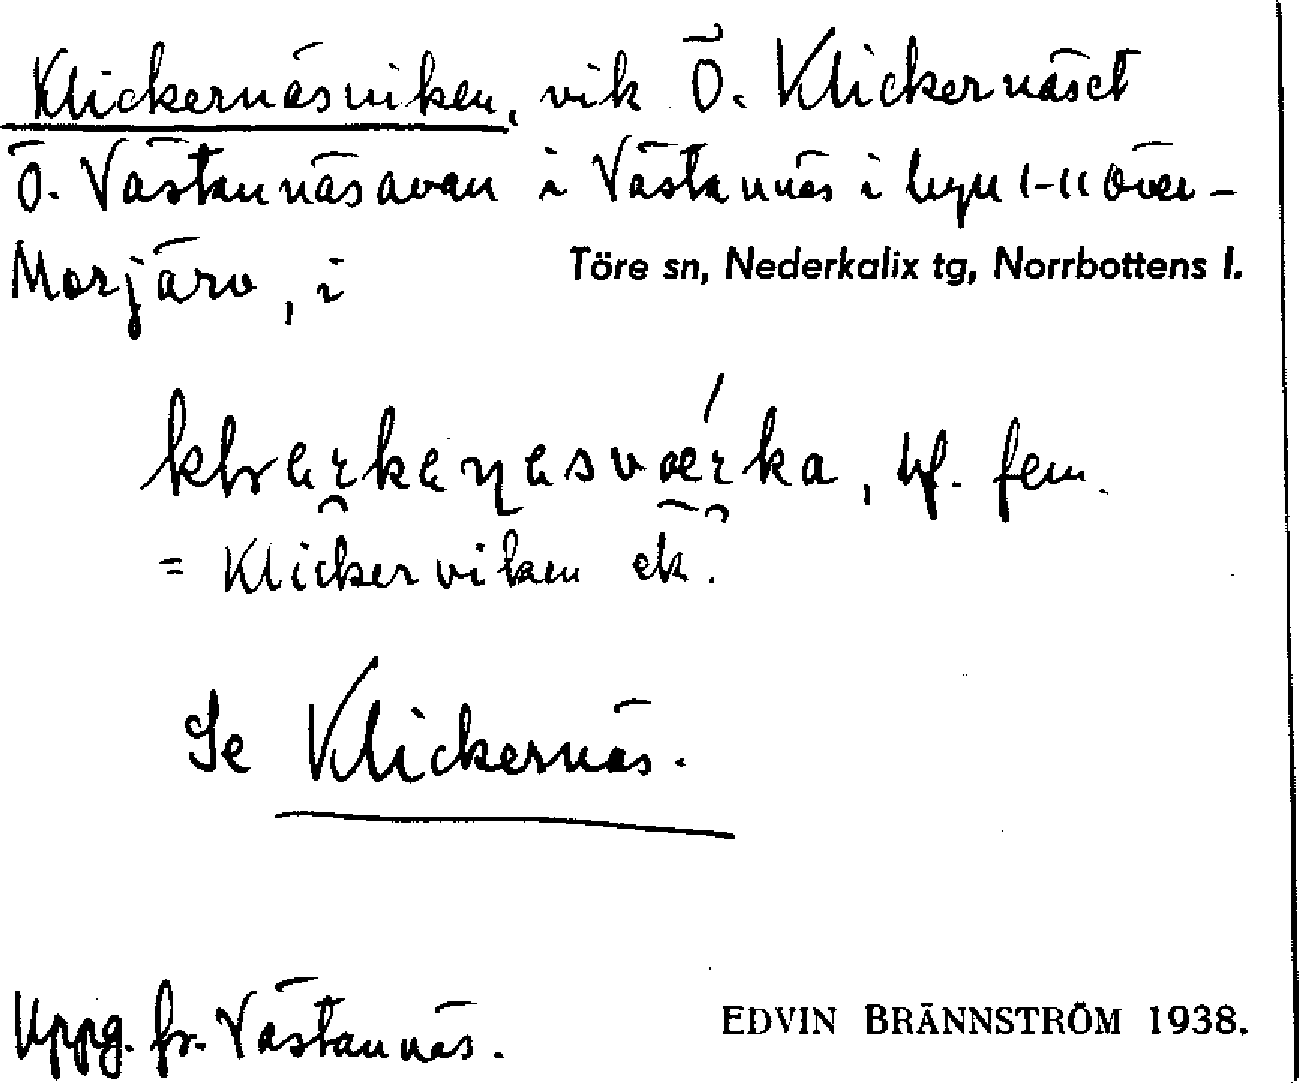 Klickernäsviken, vik Ö. Klickernäset
Ö. Västannäsavan i Västannäs i byn 1-11 Över-
Morjärv, i Töre sn, Nederkalix tg, Norrbottens l.
bf. fem.
= Klickerviken etc.
Se Klickernäs.
Uppg. fr. Västannäs.
EDVIN BRÄNNSTRÖM 1938.